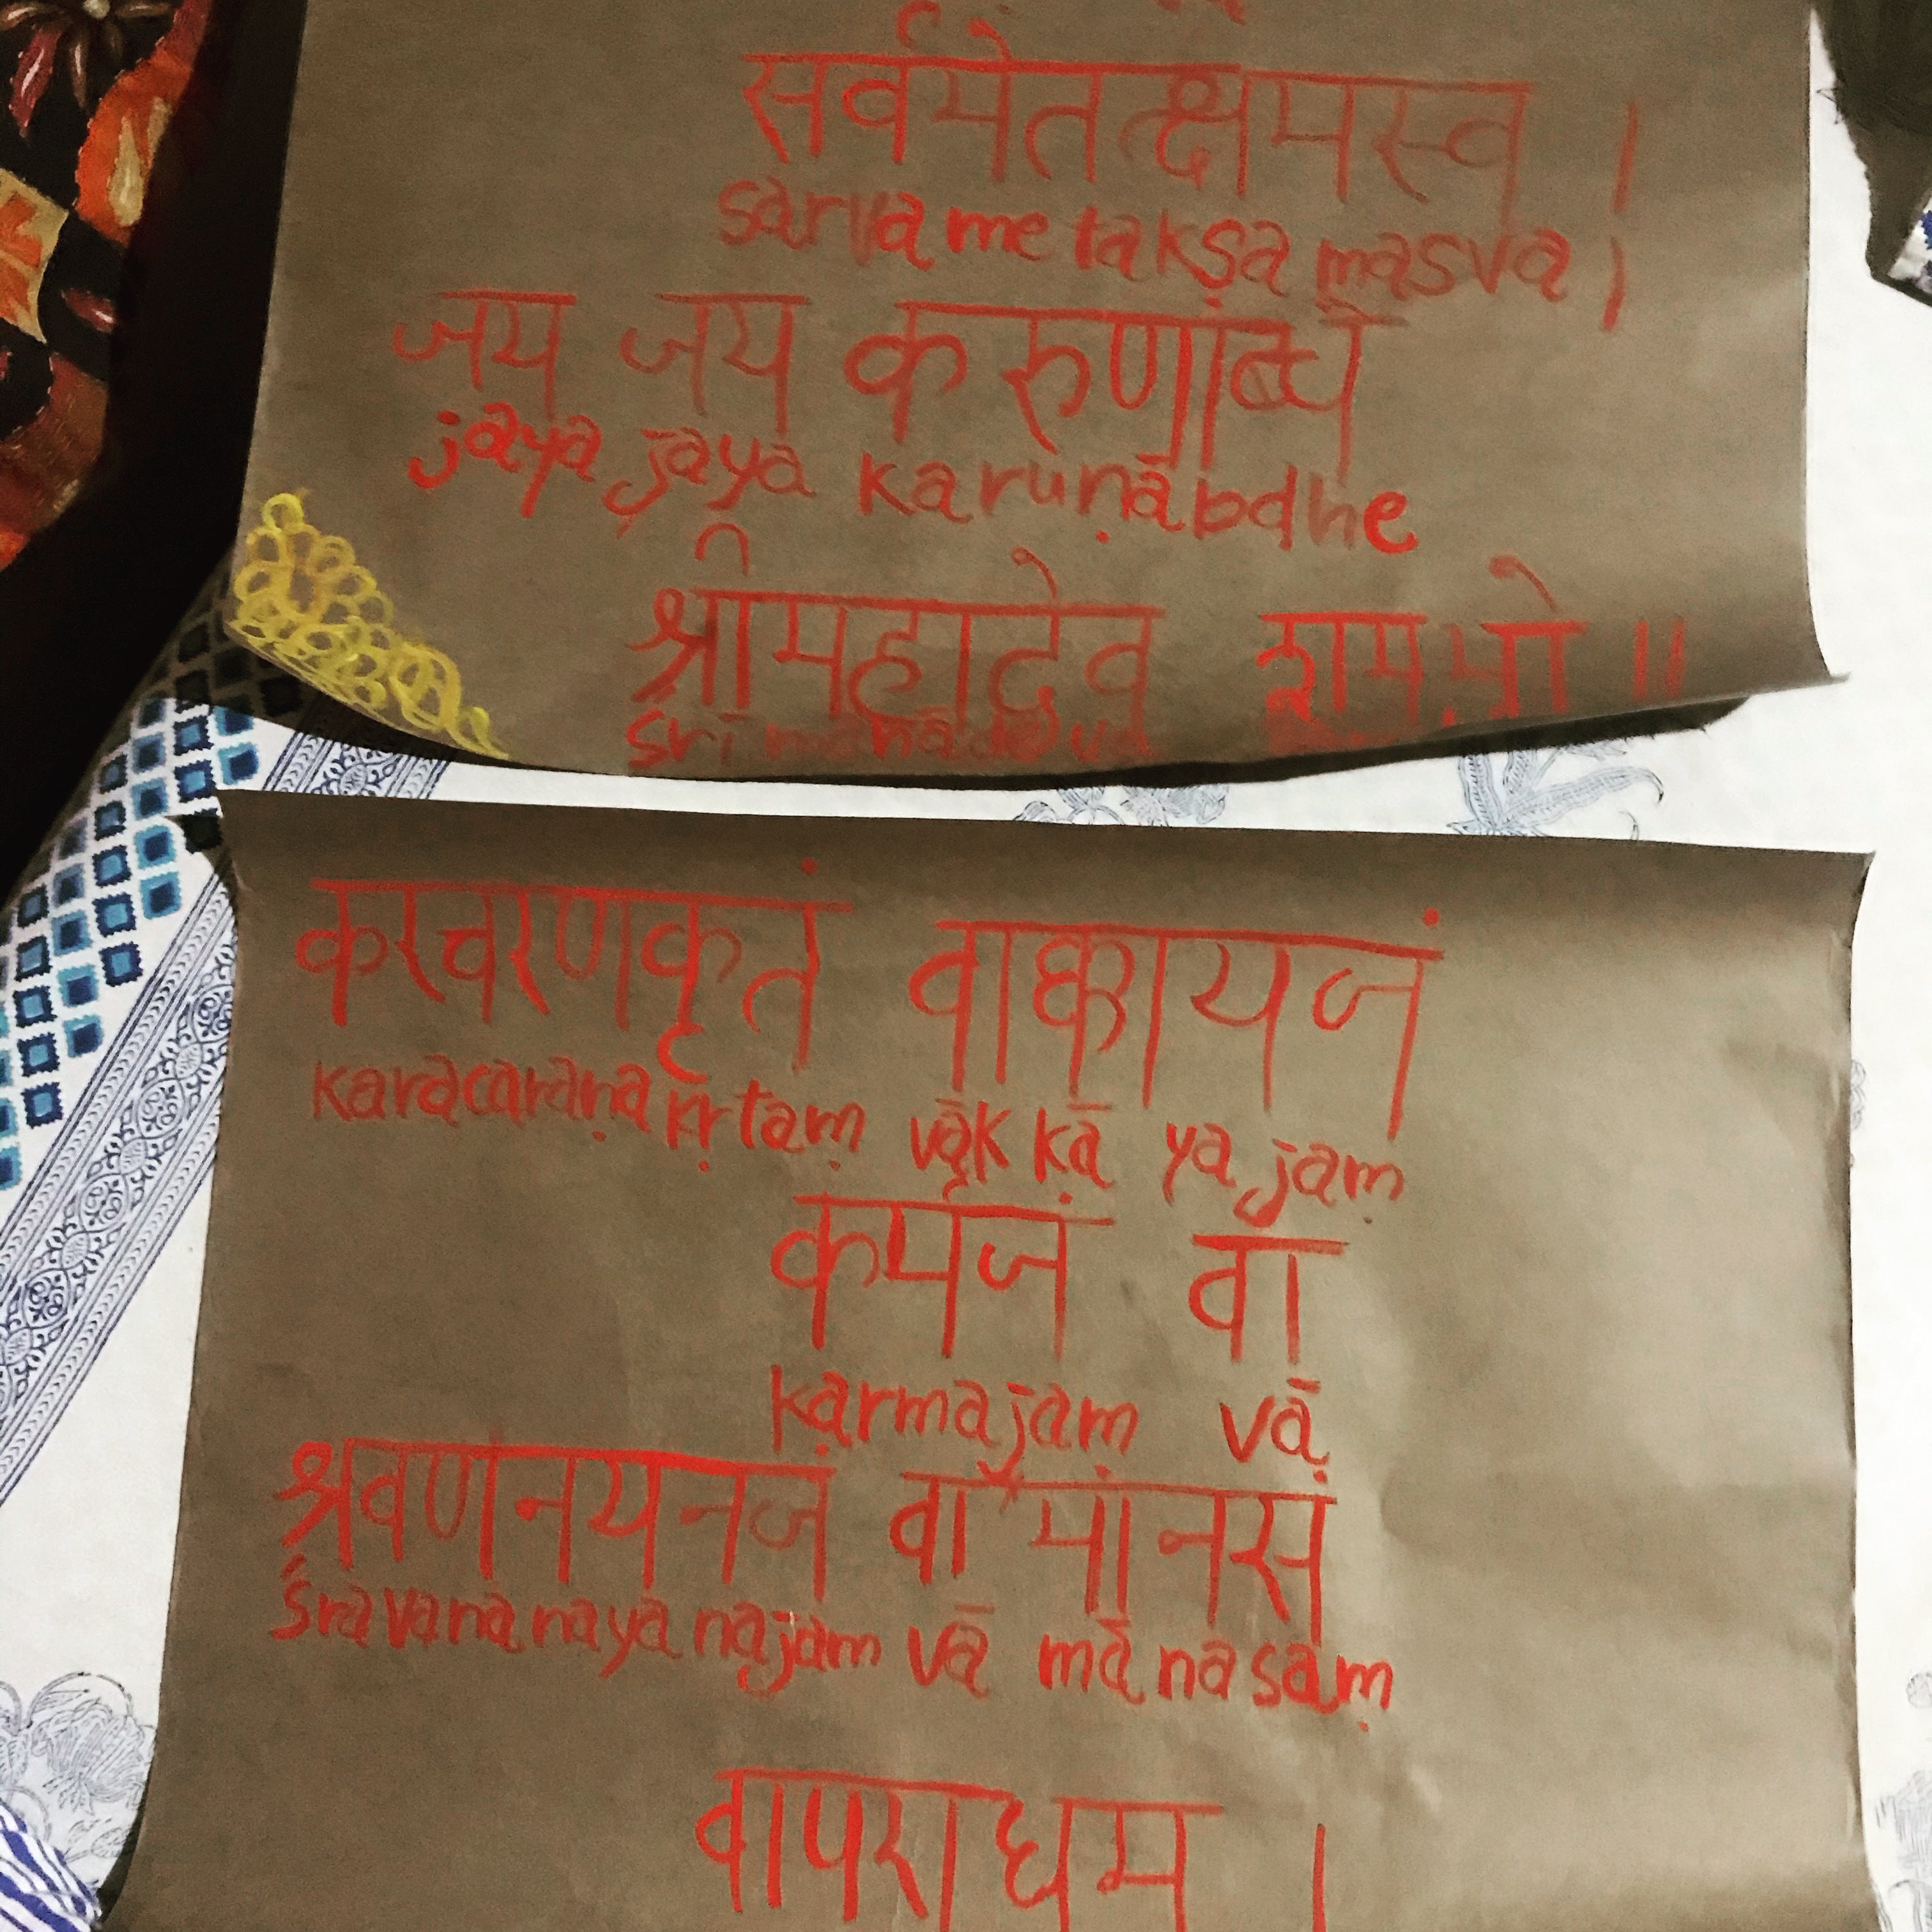 सर्वमेतत्क्षमस्व ।
sarva me taksa masva |
जय जय करुणाब्धे
jaya jaya karuṇābdhe
श्रीमहादेव शम्भो ॥
śrī mahādeva
करचरणकृतं वाक्कायजं
karacaraṇa kṛtaṃ vāk kā ya jaṃ
कर्मजं वा
karmajaṃ vā
श्रवणनयनजं वा मानसं
śravaṇa nayanajaṃ vā mānasaṃ
वापराधम ।